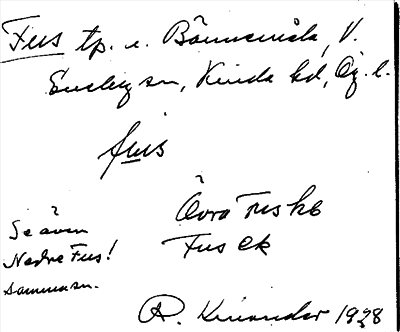 Fus tp. u. Bånnsnåla, V.
Eneby sn, Kinda hd, Ög. l.
fus
Övra Fus hb
Fus ek
Se även
Nedre Fus!
samma sn.
R. Kinander 1928